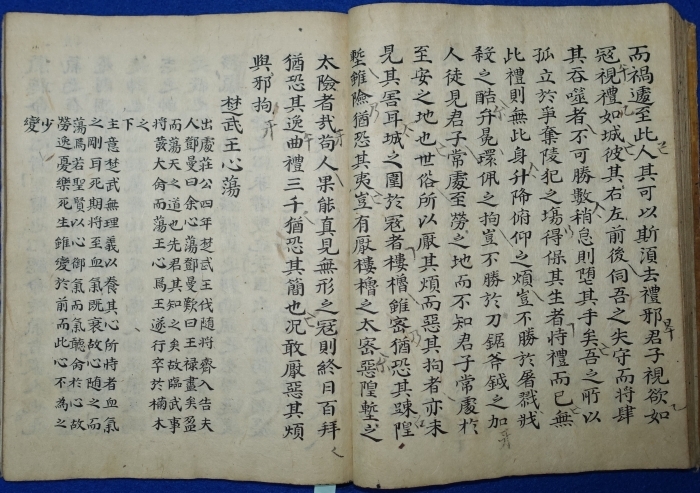 而禍遽至此人其可以斯須去禮邪君子視欲如
冦視禮如城彼其右左前後伺吾之失守而將肆
其吞噬者不可勝數稍怠則堕其手矣吾之所以
孤立於爭棄陵犯之場得保其生者将禮而已無
此禮則無此身升降俯仰之煩豈不勝於屠戮戕
殺之酷升冕環佩之拘豈不勝於刀鋸斧鉞之加
人徒見君子常處至勞之地而不知君子常處於
至安之地也世俗所以厭其煩而惡其拘者亦未
見其害耳城之圍於冦者樓櫓雖密猶恐其踈隍
塹雖險猶恐其夷豈有厭樓櫓之太密惡隍塹之
太險者㢤苟人果能真見無形之冦則終日百拜
猶恐其逸曲禮三千猶恐其簡也况敢厭惡其煩
與邪拘
楚武王心蕩
出處莊公四年楚武王伐随將齊入告夫
人鄧曼曰余心蕩鄧曼歎曰王禄盡矣盈
而蕩天之道也先君其知之矣故臨武事
将發大命而蕩王心焉王遂行卒於樠木
之下
主意楚武無理義以養其心所恃者血氣
之剛耳死期将至血氣既衰故心随之而
蕩焉若聖賢以心御氣而氣聽命於心故
勞逸憂樂死生雖變於前而此心不為之
少變